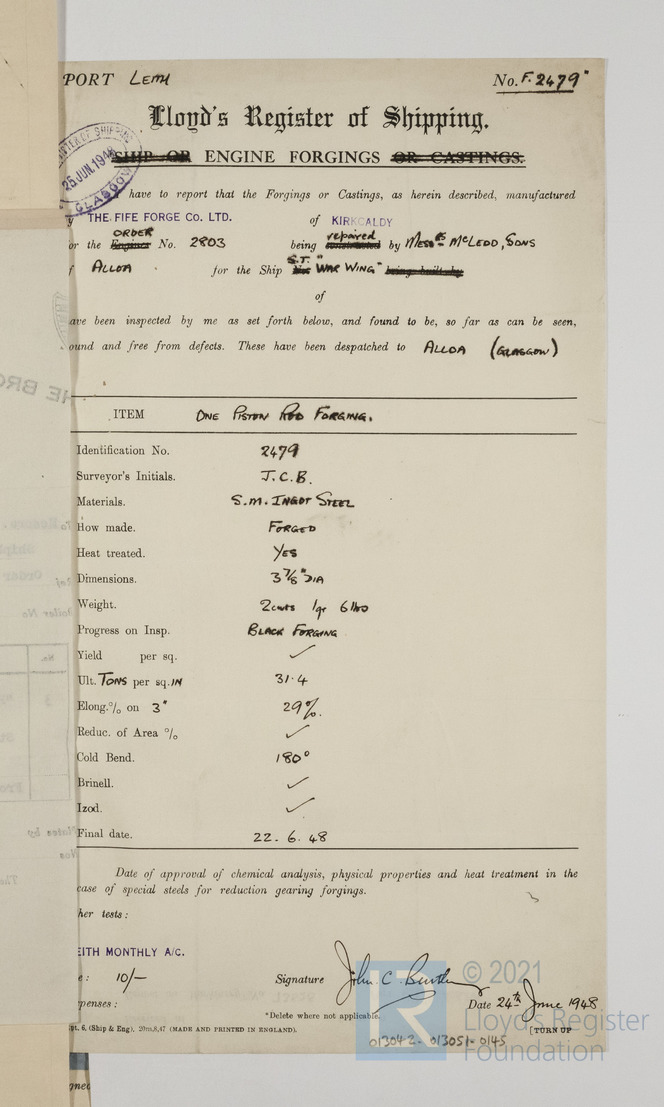 PORT LEITH No. F. 2479
Lloyd's Register of Shipping.
SHIP OR ENGINE FORGINGS OR CASTINGS.
26 JUN 1948
GLASGOW
have to report that the Forgings or Castings, as herein described, manufactured
THE FIFE FORGE CO. LTD. of KIRKCALDY
ORDER repaired
or the Engines No. 2803 being constructed by Messrs McLEOD, SONS
S.T.
f ALLOA for the Ship "WAR WING" being built by
of
ave been inspected by me as set forth below, and found to be, so far as can be seen,
ound and free from defects. These have been despatched to ALLOA (GLASGOW)
HE BRO
ITEM ONE PISTON ROD FORGING.
Identification No. 2479
Surveyor's Initials. J.C.B.
Materials. S.M. INGOT STEEL
How made. FORGED
Heat treated. YES
Dimensions. 3 7/8" DIA
Weight. 2 cwts 1 qr 6 lbs
Progress on Insp. BLACK FORGING
Yield per sq. ✓
Ult. TONS per sq. IN 31.4
Elong. % on 3" 29%.
Reduc. of Area % ✓
Cold Bend. 180°
Brinell. ✓
Izod. ✓
Final date. 22. 6. 48
Date of approval of chemical analysis, physical properties and heat treatment in the
case of special steels for reduction gearing forgings.
her tests:
EITH MONTHLY A/C.
e: 10/- Signature John. C. Date 24th June 1948
penses:
*Delete where not applicable.
pt. 6. (Ship & Eng). 20m,8,47 (MADE AND PRINTED IN ENGLAND). [TURN UP
013042-013051-0145
gned
LR
© 2021
Lloyd's Register
Foundation